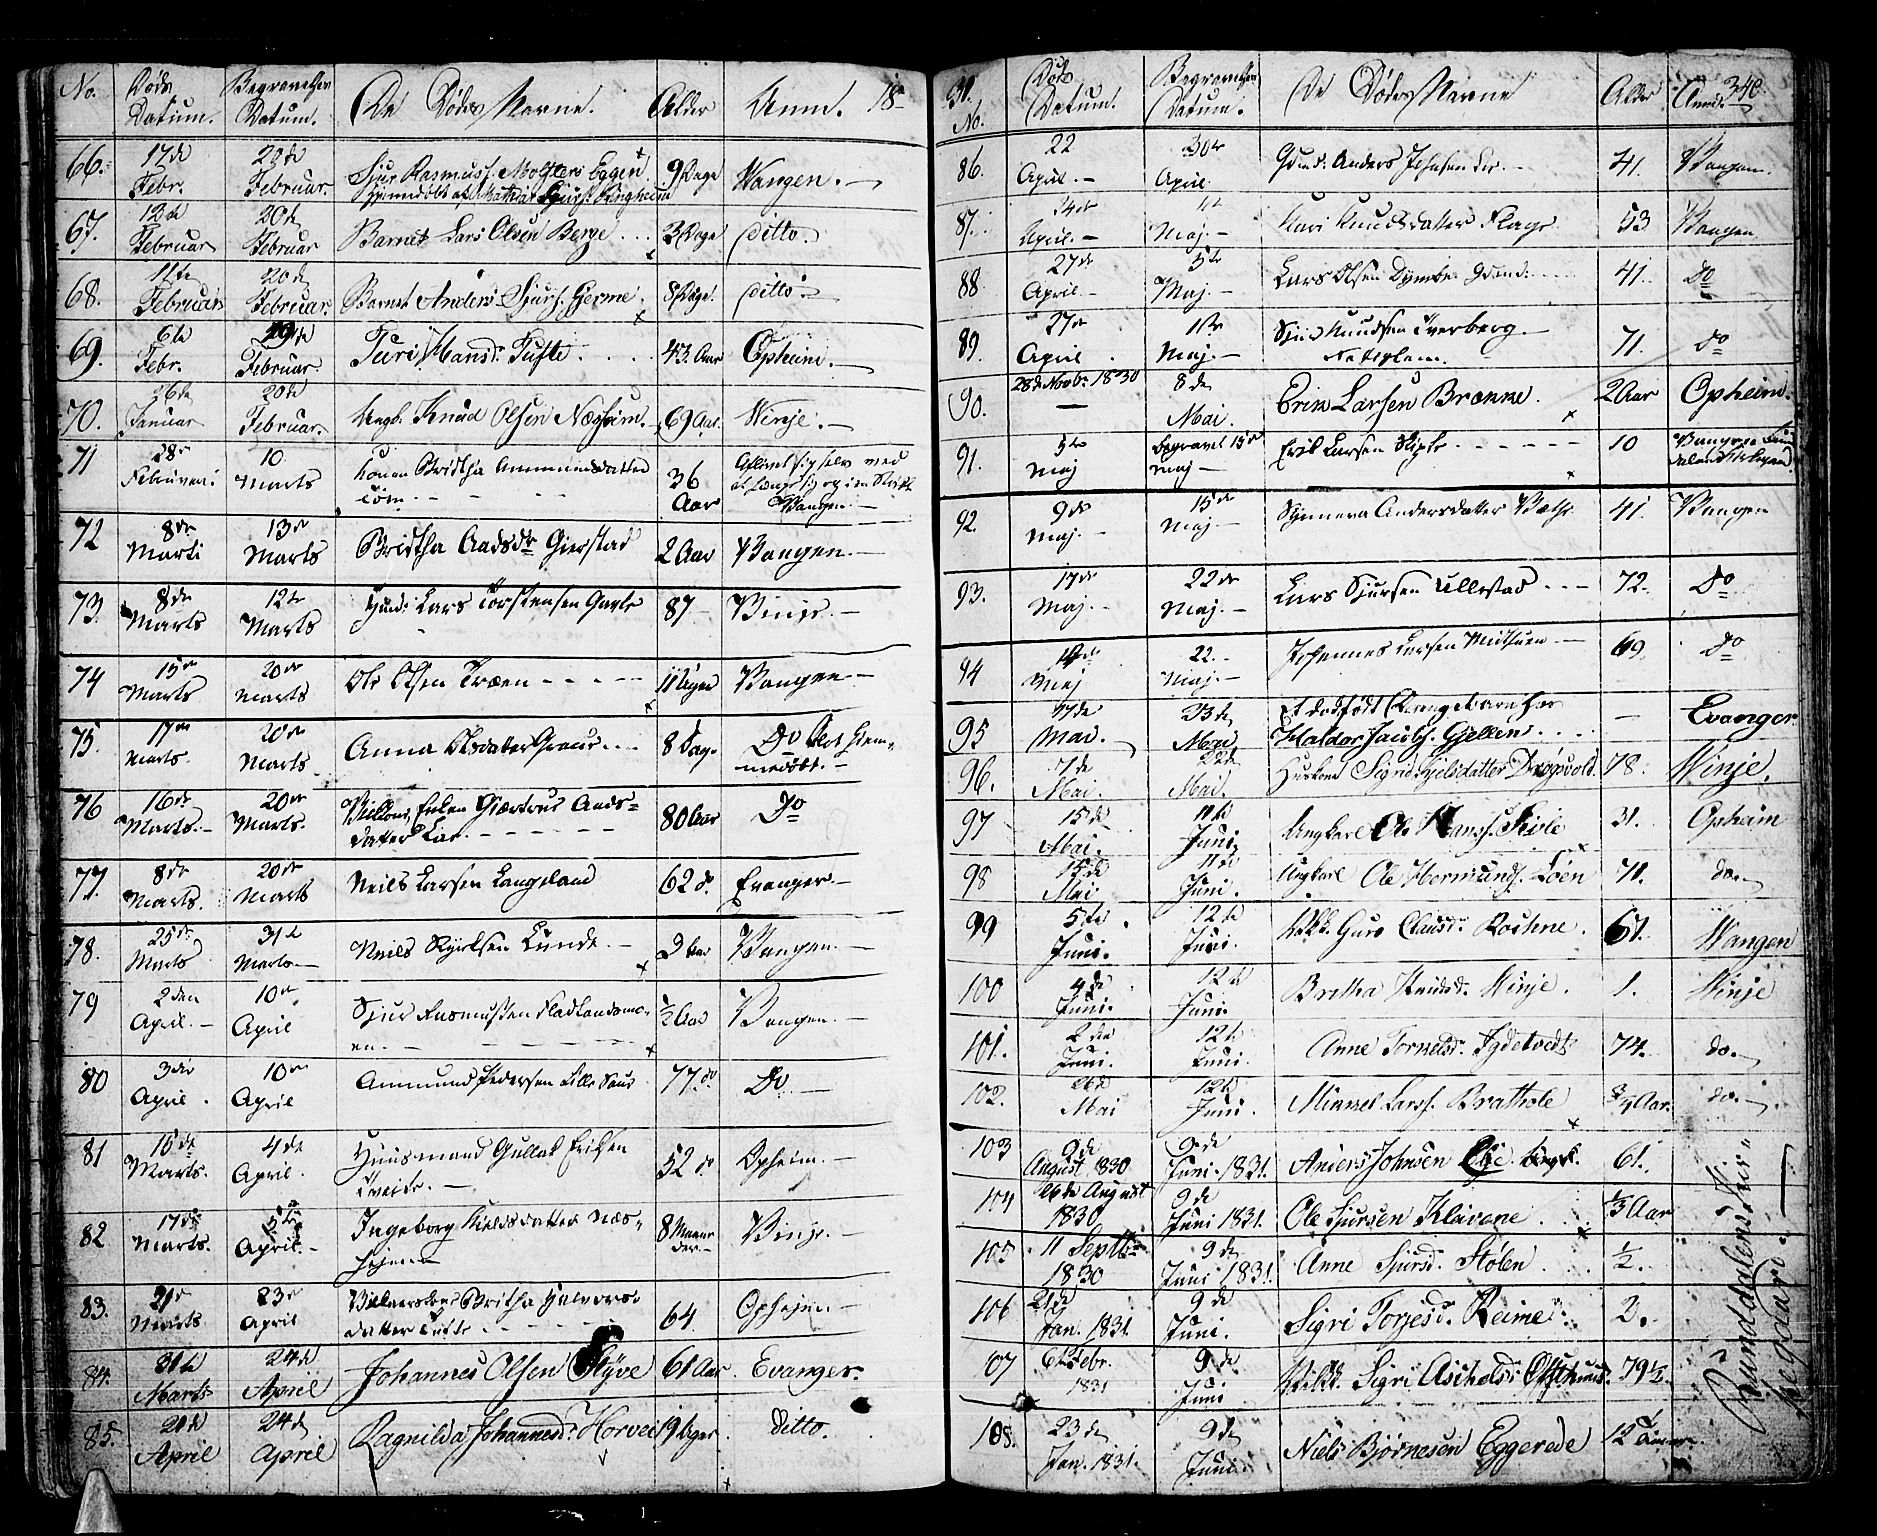 No. Døds Datum. Begravelses Datum. De Dødes Navne. Alder Anm. 18
66. 17de Febr. 20de Februar. Sjur Rasmuss. Mølsters Eggen. 9 Dage Vangen.
67. 12te Februar 20de Februar Barnet Lars Olsen Berge 3 Dage ditto.
68. 11te Februar 20de Februar. Barnet Anders Sjurs. Gjerme 8 Dage. ditto
69. 6te Febr. Februar. Turi Hansd. Tufte. 43 Aar Opheim.
70. 26de Januar 20de Februar. Ungk. Knud Olsen Næsheim. 69 Aar. Vinje.
71 28de Februari 10 Marts Konen Britha Ammundsdatter 36 Aar Aflivet sig selv ved Vangen
72 8de Marti 13de Marts Bridtha Aadsdr Gierstad 2 Aar Vangen.
73. 8de Marts 12te Marts Huusmd. Lars Torstensen 87 Vinje.
74 15de Marts 20de Marts Ole Olsen Træen 11 Uger Vangen
75. 17de Marts. 20de Marts Anna Olsdatter 8 Dage. Do Hiemmedøbt.
76 16de Marts. 20de Marts. Enken Giertrud Aadsdatter Lie. 80 Aar Do
77. 8de Marts. 20de Marts Neils Larsen Langeland 62 do. Evanger.
78. 25de Marts 31te Marts Neils Lunde. Aar Vangen.
79 2den April. 10de April Sjur Rasmussen Fladlandsmoen. ½ Aar Vangen.
80 3die April. 10de April Ammund Pedersen Lille Saue 77. do. Do
81 15de Marts. 4de April. Huusmand Gullek Eriksen Tveite. 52 do Opheim.
82 17de Marts. 5te April. Ingeborg Nielsdatter Næsheim 8 Maaneder. Vinje.
83. Marts 23de April Britha Halvorsdatter Tufte 64. Opheim
84. 31te Marts 24de April Johannes Olsen Styve 61 Aar Evanger.
85. 20de April 24de April Ragnilda Johannesd. Horvei 19 Uger ditto.
31. No. Døds Datum. Begravelses Datum. De Dødes Navne Alder Anm. 340.
86. 22 April. 30te April. Gmd. Anders Johnsen Lie. 41. Vangen.
87. 24de April. Maj. Kari Knudsdatter Flage 53 Vangen
88 27de April. 5te Maj. Lars Olsen Dymbe Gmd. 41. Do
89. 27de April. Maj. Sjur Knudsen Tverberg. 71. do
90. 28de Novb. 1830 8de Mai. Erik Larsen Brænne. 2 Aar Opheim.
91. 5te Maj begravet 15de Maj Erik Larsen 10
92. 9de Maj. 15de Maj. Synneva Andersdatter Bøthe 41. Vangen
93. 17de Maj. 22de Maj. Lars Sjursen Ullestad 72. Do
94 Maj 22. Maj. Johannes Larsen Midthuen 69. Do
95 17de Mai. 23de Mai Et dødfødt Drengebarn Haldor Jacobs. Gjellen — Evanger
96. 7de Mai. 22de Mai. Huskone Sigrid Nielsdatter Drøgsvold. 78. Vinje.
97 15de Mai. 11te Juni. Ungkarl Ole Hanss. Seivle 31. Opheim
98 15de Mai 11te Juni. Ungkarl Ole Hermunds. Løen 71. do.
99 5te Juni. 12te Juni. Guro Clausd. Rochne. 61. Vangen
100 4de Juni. 12te Juni. Britha Knudsd. Vinje. 1. Vinje
101. 2den Juni. 12te Juni. Anne Torkelsd. Sydetvedt. 74. do.
102. 26de Mai 12te Juni. Mikkel Larss. Brathole ¾ Aar. do.
103 9de August 1830 9de Juni. 1831. Anders Johnsen 61.
104 26de August 1830 9de Juni 1831. Ole Sjursen Klævene ⅓ Aar
105 11 Septbr. 1830 9de Juni 1831. Anne Sjursd. Stølen ½.
106 21de Jan. 1831. 9de Juni. Sigri Torjesd. Reime 2.
107 6te Febr. 1831 9de Juni Sigri Asiholsd. 79½.
108. 23de Jan. 1831. 9de Juni. Niels Bjørnesen Eggerede 12 Timer.
Runddalens Kirkegaard.